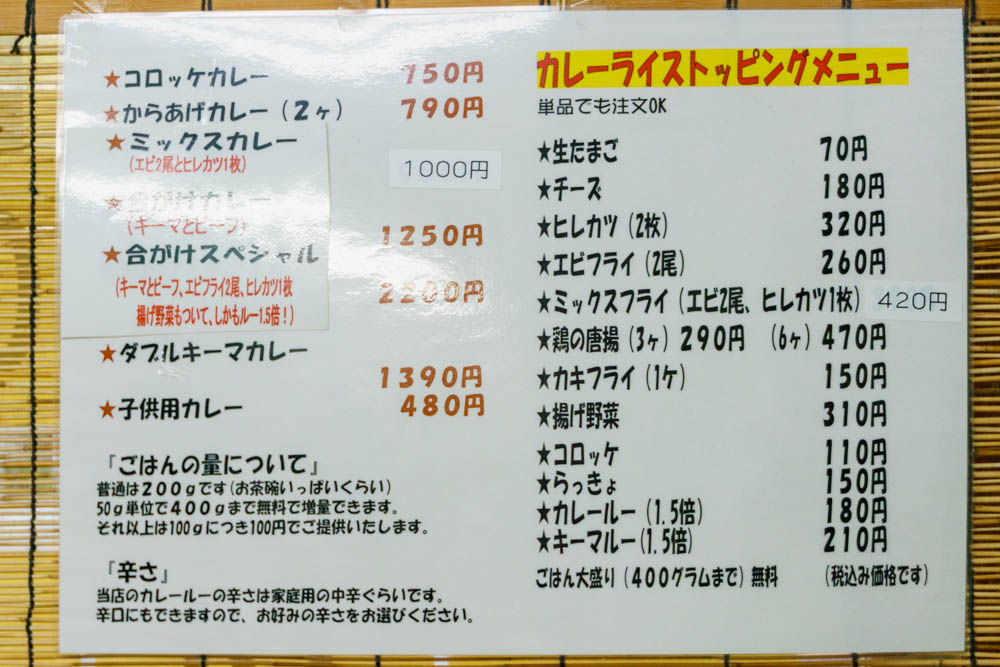 ★コロッケカレー 750円
★からあげカレー（2ヶ） 790円
★ミックスカレー
(エビ2尾とヒレカツ1枚) 1000円
合がけカレー
(キーマとビーフ) 1250円
★合がけスペシャル
(キーマとビーフ、エビフライ2尾、ヒレカツ1枚 2200円
揚げ野菜もついて、しかもルー1.5倍！)
★ダブルキーマカレー
1390円
★子供用カレー 480円
『ごはんの量について』
普通は200gです(お茶碗いっぱいくらい)
50g単位で400gまで無料で増量できます。
それ以上は100gにつき100円でご提供いたします。
『辛さ』
当店のカレールーの辛さは家庭用の中辛ぐらいです。
辛口にもできますので、お好みの辛さをお選びください。
カレーライストッピングメニュー
単品でも注文OK
★生たまご 70円
★チーズ 180円
★ヒレカツ（2枚） 320円
★エビフライ（2尾） 260円
★ミックスフライ（エビ2尾、ヒレカツ1枚） 420円
★鶏の唐揚（3ヶ）290円 （6ヶ）470円
★カキフライ（1ケ） 150円
★揚げ野菜 310円
★コロッケ 110円
★らっきょ 150円
★カレールー（1.5倍） 180円
★キーマルー（1.5倍） 210円
ごはん大盛り（400グラムまで）無料 （税込み価格です）